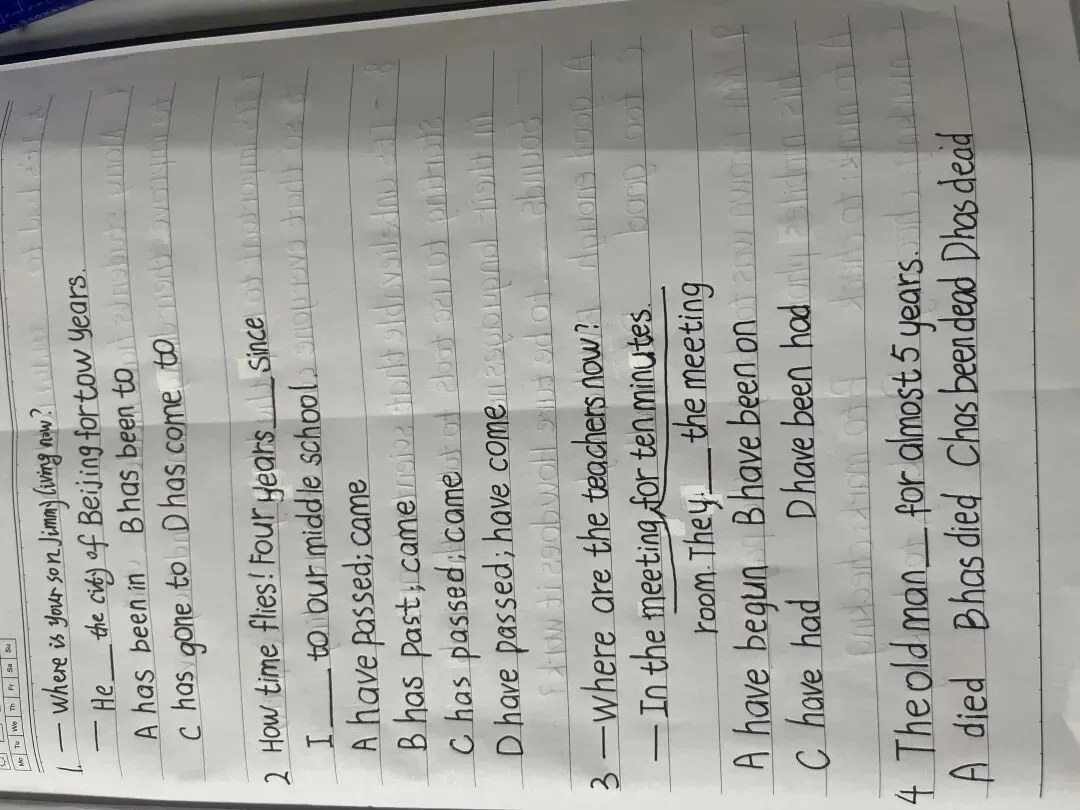 Mo Tu We Th Fr Sa Su
1. — Where is your son Jimmy living now?
— He___the city of Beijing for tow years.
A has been in B has been to
C has gone to D has come to
2 How time flies! Four years___since
I___to our middle school.
A have passed; came
B has past; came
C has passed; came
D have passed; have come
3 — Where are the teachers now?
— In the meeting for ten minutes.
room. They___the meeting
A have begun B have been on
C have had D have been had
4 The old man__for almost 5 years.
A died B has died C has been dead D has dead